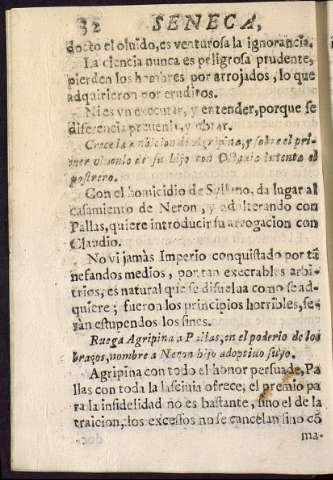 32 SENECA,
docto el oluido, es venturosa la ignorancia.
La ciencia nunca es peligrosa prudente,
pierden los hombres por arrojados, lo que
adquirieron por eruditos.
Ni es vn executar, y entender, porque se
diferencia preuenir, y obrar.
Crece la ambicion de Agripina, y sobre el pri-
mer vinculo de su hijo con Octauia intenta el
postrero.
Con el homicidio de Syllano, da lugar al
casamiento de Neron, y adulterando con
Pallas, quiere introducir su arrogacion con
Claudio.
No vi jamàs Imperio conquistado por tã
nefandos medios, por tan execrables arbi-
trios, es natural que se disuelua como se ad-
quiere; fueron los principios horribles, se-
ràn estupendos los fines.
Ruega Agripina a Pallas, en el poderio de los
braços, nombre a Neron hijo adoptiuo suyo.
Agripina con todo el honor persuade, Pa
llas con toda la lasciuia ofrece, el premio pa
ra la infidelidad no es bastante, sino el de la
traicion, los excessos no se cancelan sino cõ
ma-